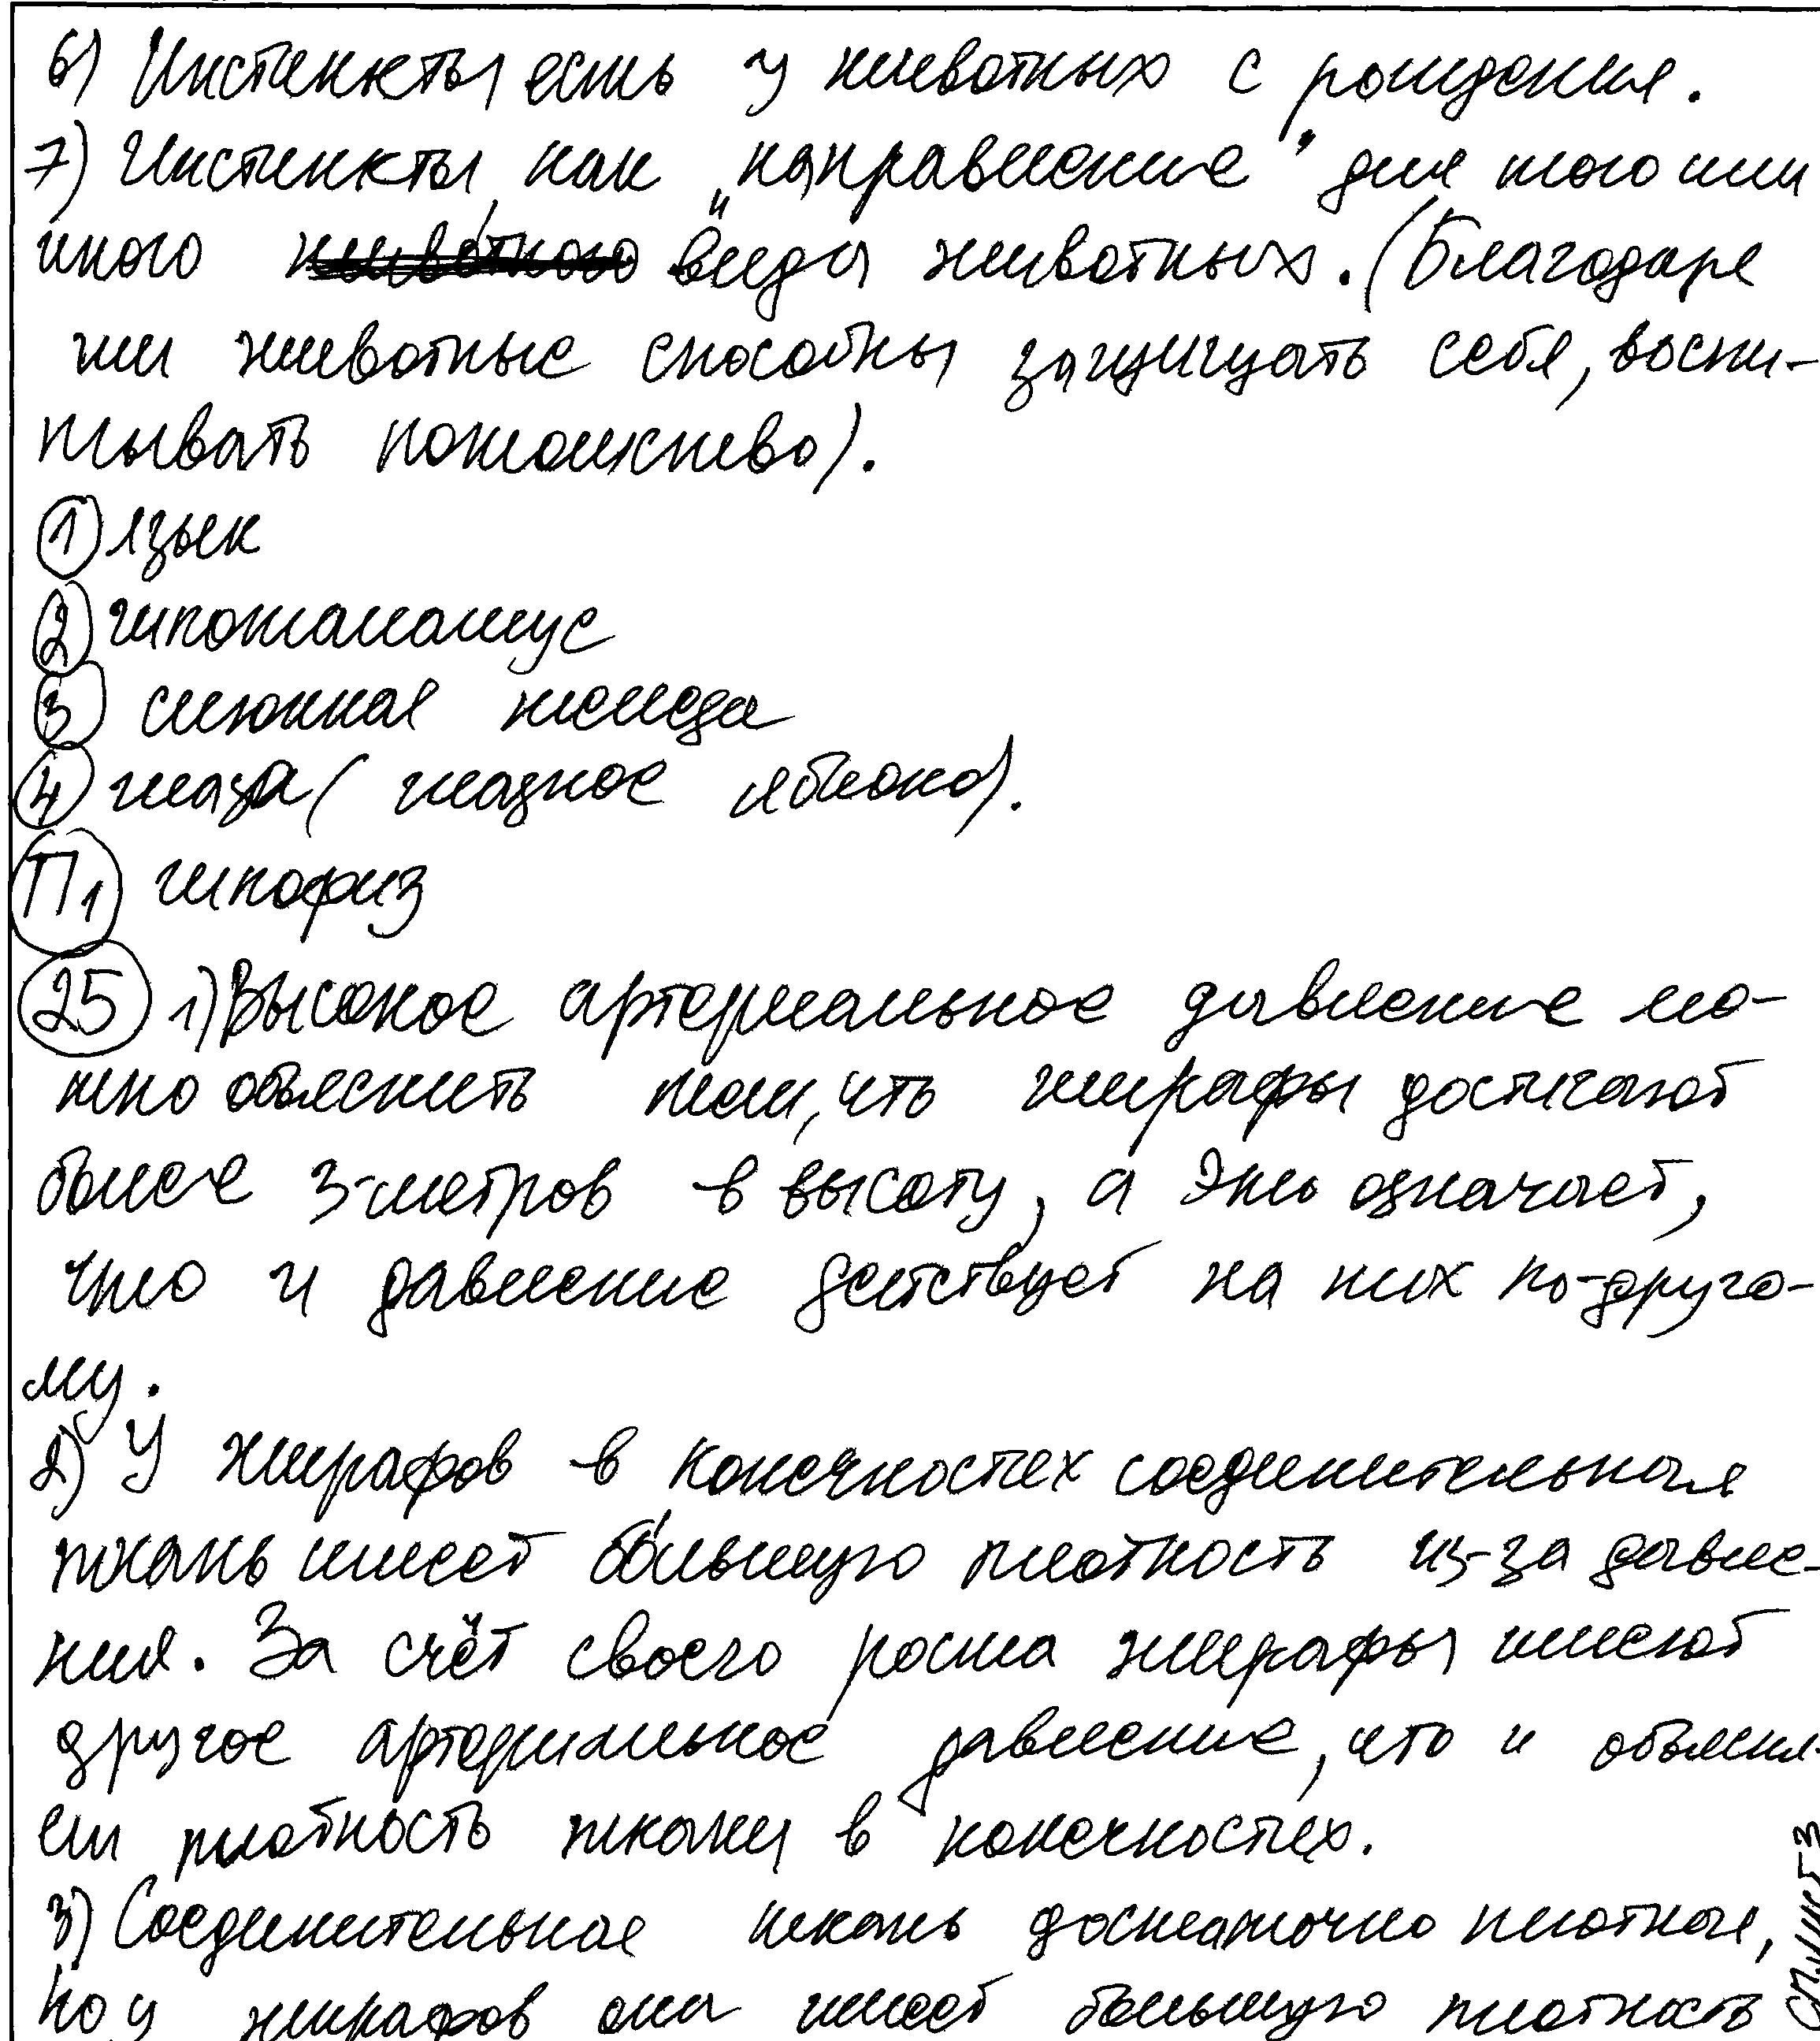 6) Инстинкты есть у животных с рождения.
7) Инстинкты, как „направление" для того или
иного животного вида животных. (Благодаря
им животные способны защищать себя, воспи-
тывать потомство).
1 язык
2 гипоталамус
3 слюнная железа
4 глаза (глазное яблоко).
П1 гипофиз
25 1) Высокое артериальное давление мо-
жно объяснить тем, что жирафы достигают
более 3-метров в высоту, а это означает,
что и давление действует на них по-друго-
му.
2) У жирафов в конечностях соединительная
ткань имеет бо́льшую плотность из-за давле-
ния. За счёт своего роста жирафы имеют
другое артериальное давление, что и объясня-
ет плотность ткани в конечностях.
3) Соединительная ткань достаточно плотная,
но у жирафов она имеет большую плотность